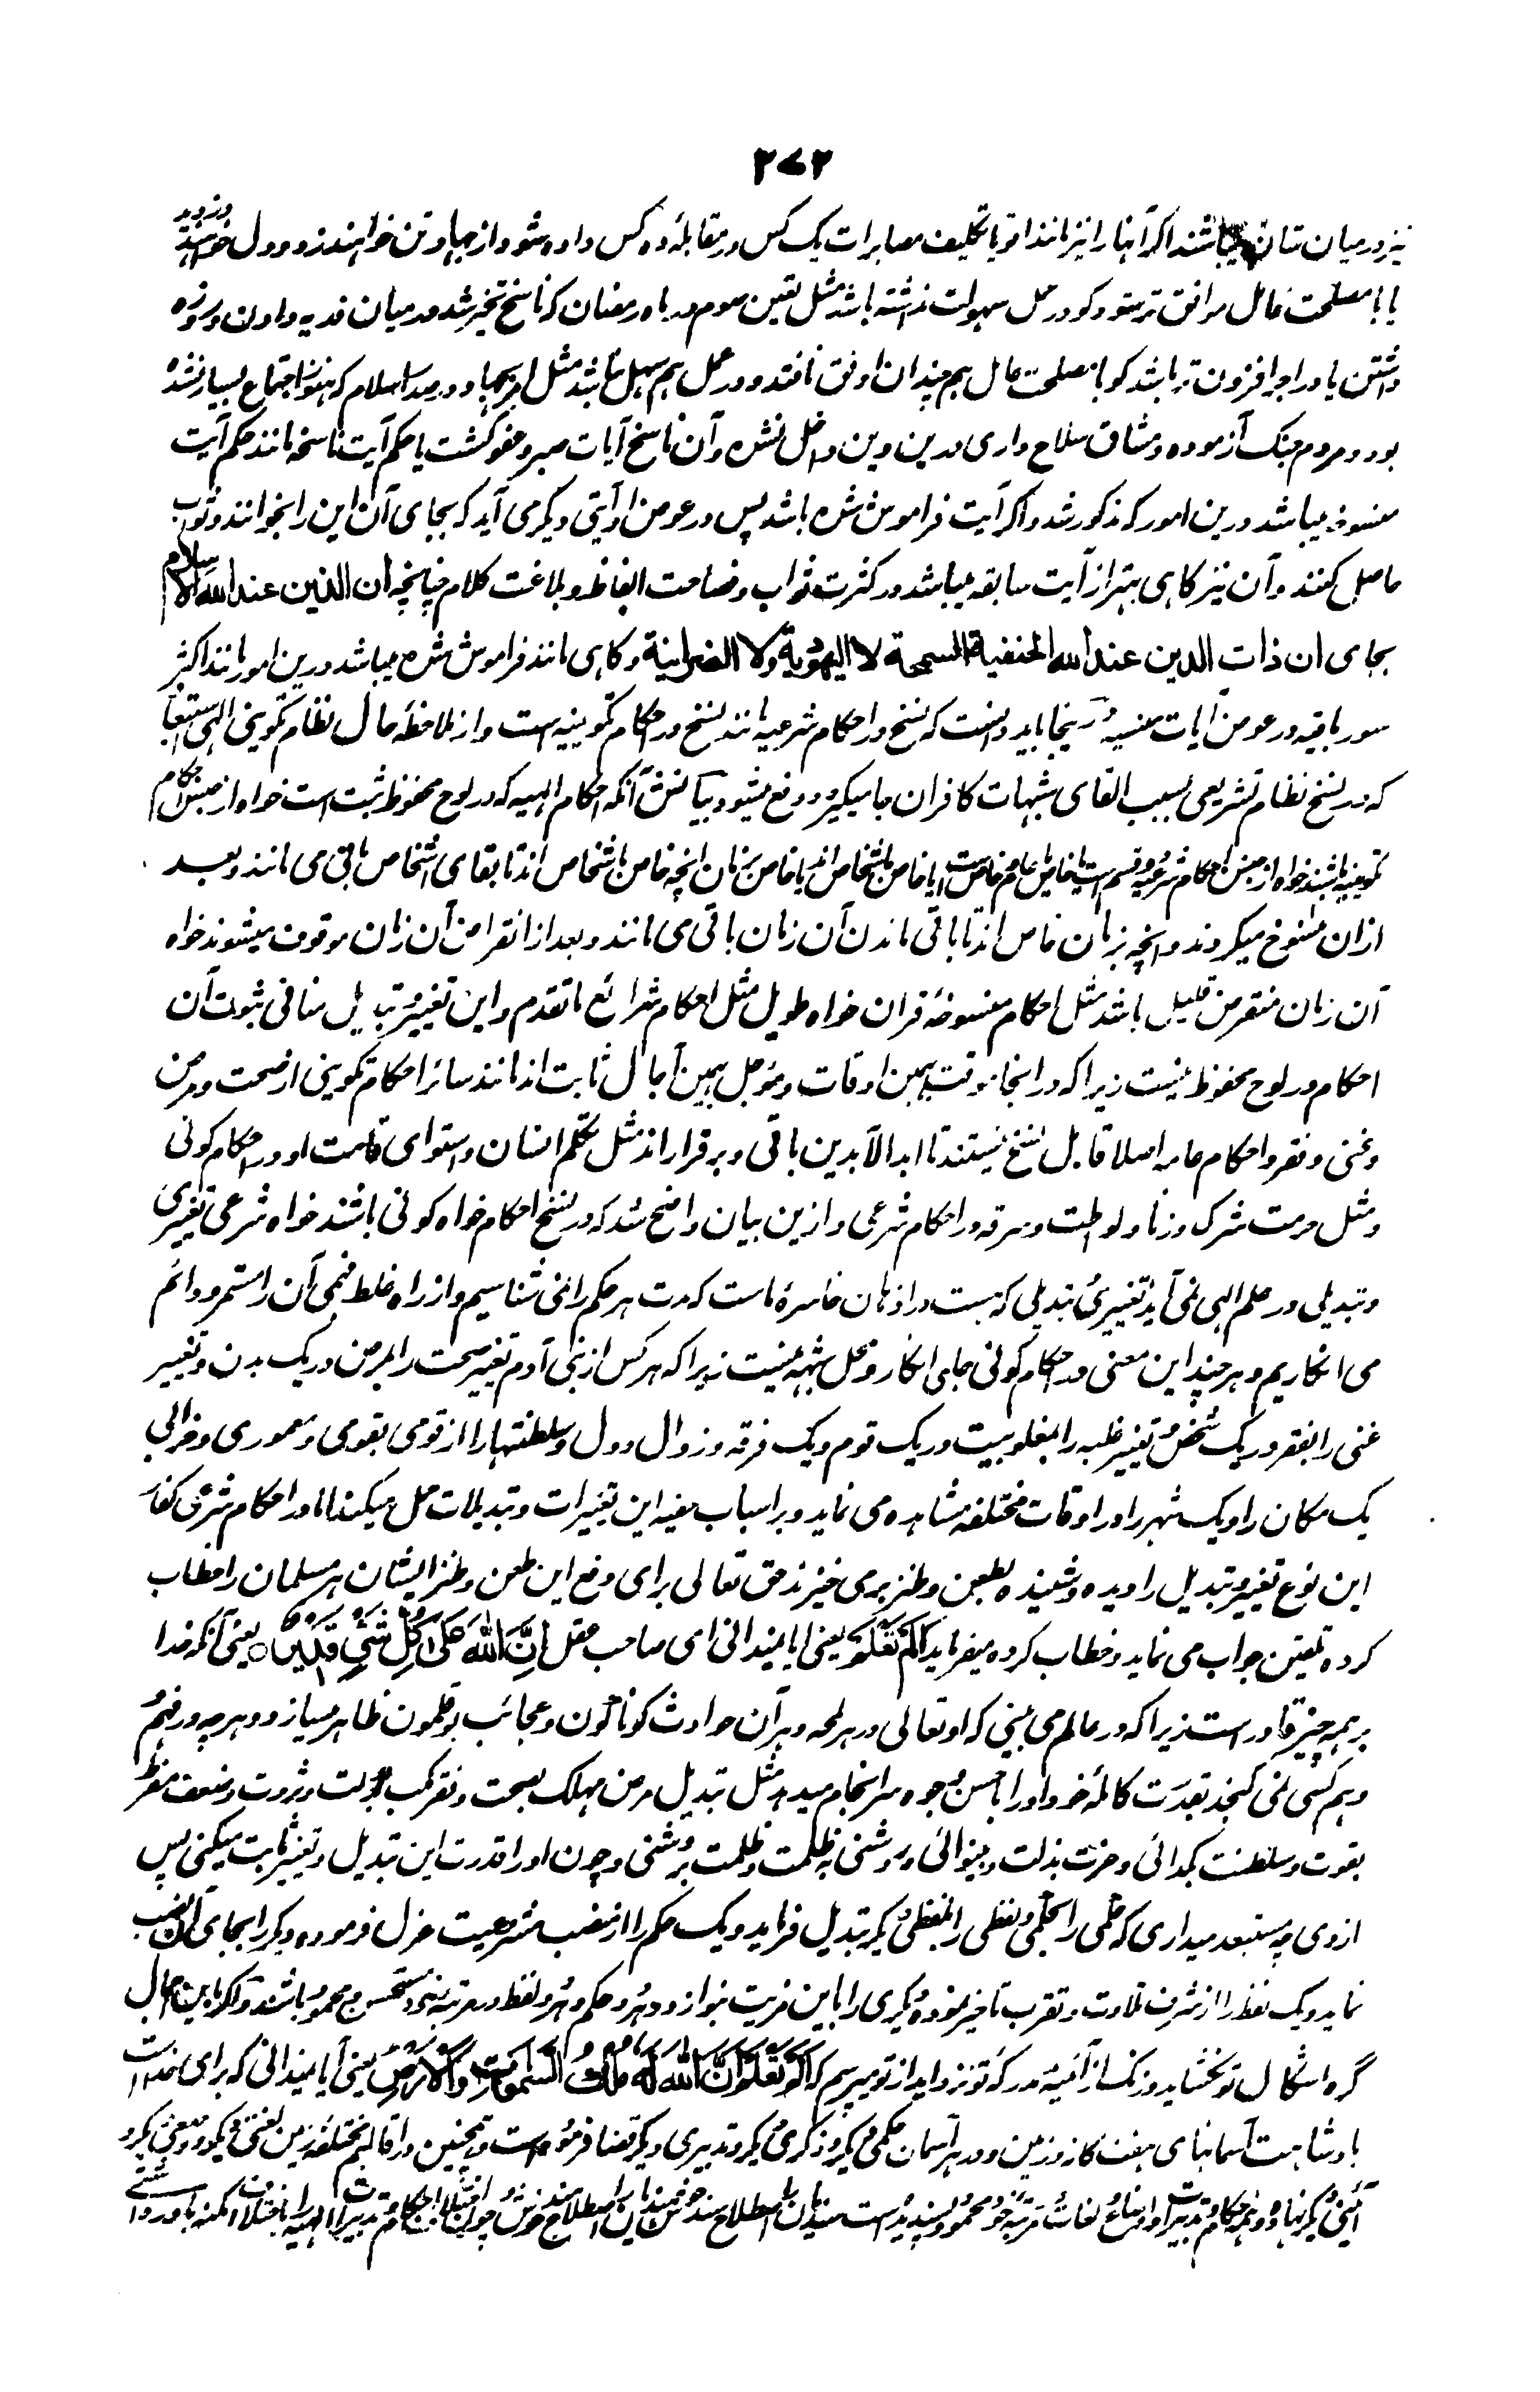 ۲۷۲
نیز درمیان شان میباشند اگر آنها را نیز مانند اقویا تکلیف مصابرات یک کس در مقابلهٔ ده کس داده شود از جهاد تن خواهند زد و دل خواهند دزدید
یا با مصلحت حال موافق تر بود گو در عمل سهولت نداشته باشد مثل تعین صوم در ماه رمضان که ناسخ تخییر شد در میان فدیه دادن و روزه
داشتن یا در اجر افزون تر باشد گو با مصلحت حال هم چندان اوفق نافتد و در عمل هم سهل نباشد مثل امر بجهاد در صدر اسلام که هنوز اجتماع بسیار نشده
بود و مردم جنگ آزموده و مشاق سلاح داری درین دین داخل نشده و آن ناسخ آیات صبر و عفو گشت یا حکم آیت ناسخه مانند حکم آیت
منسوخه میباشد درین امور که مذکور شد و اگر آیت فراموش شده باشد پس در عوض او آیتی دیگر می آید که بجای آن این را بخوانند و ثواب
حاصل کنند و آن نیز گاهی بهتر از آیت سابقه میباشد در کثرت ثواب و فصاحت الفاظ و بلاغت کلام چنانچه ان الدین عند الله الاسلام
بجای ان ذات الدین عند الله الحنفیة السمحة لا الیهودیة ولا النصرانیة و گاهی مانند فراموش شده میباشد درین امور مانند اکثر
سور باقیه در عوض آیات منسیه و اینجا باید دانست که نسخ در احکام شرعیه مانند نسخ در احکام تکوینیه است و از ملاحظهٔ حال نظام تکوینی الهی استبعاد
که در نسخ نظام تشریعی بسبب القای شبهات کافران جا میگیرد دفع میشود بیانش آنکه احکام الهیه که در لوح محفوظ ثبت است خواه از جنس احکام
تکوینیه باشند خواه از جنس احکام شرعیه دو قسم است یا خاص یا عام و خاص است یا خاص باشخاص اند یا خاص بزمان انچه خاص باشخاص اند تا بقای اشخاص باقی می مانند و بعد
ازان منسوخ میگردند و انچه بزمان خاص اند تا باقی ماندن آن زمان باقی می مانند و بعد از انقراض آن زمان موقوف میشوند خواه
آن زمان منقرض قلیل باشد مثل احکام منسوخهٔ قران خواه طویل مثل احکام شرائع ما تقدم و این تغییر و تبدیل منافی ثبوت آن
احکام در لوح محفوظ نیست زیرا که در انجا موقت بهمین اوقات و مؤجل بهمین آجال ثابت اند مانند سائر احکام تکوینی از صحت و مرض
و غنی و فقر و احکام عامه اصلا قابل نسخ نیستند تا ابد الآبدین باقی و برقرار اند مثل تکلم انسان و استوای قامت او در احکام کونی
و مثل حرمت شرک و زنا و لواطت و سرقه در احکام شرعی و ازین بیان واضح شد که در نسخ احکام خواه کونی باشند خواه شرعی تغییری
و تبدیلی در علم الهی نمی آید تغییری و تبدیلی که هست در اذهان قاصرهٔ ماست که مدت هر حکم را نمی شناسیم و از راه غلط فهمی آن را مستمر و دائم
می انگاریم و هر چند این معنی در احکام کونی جای انکار و محل شبهه نیست زیرا که هر کس از بنی آدم تغییر صحت را بمرض در یک بدن و تغییر
غنی را بفقر در یک شخص و تغییر غلبه را بمغلوبیت در یک قوم و یک فرقه و زوال دول و سلطنتها را از قومی بقومی و معموری و خرابی
یک مکان را و یک شهر را در اوقات مختلفه مشاهده می نماید و بر اسباب معینه این تغییرات و تبدیلات حمل میکند اما در احکام شرعی کفار
این نوع تغییر و تبدیل را دیده و شنیده بطعن و طنز برمی خیزند حق تعالی برای دفع این طعن و طنز ایشان هر مسلمان را خطاب
کرده تلقین جواب می نماید و خطاب کرده میفرماید اَلَمْ تَعْلَمْ یعنی ایا نمیدانی ای صاحب عقل اَنَّ اللّٰهَ عَلٰی کُلِّ شَیْءٍ قَدِیْرٌ ○ یعنی آنکه خدا
بر همه چیز قادر است زیرا که در عالم می بینی که او تعالی در هر لمحه و هر آن حوادث گوناگون و عجائب بوقلمون ظاهر میسازد و هر چه در فهم
و وهم کسی نمی گنجد بقدرت کاملهٔ خود او را باحسن وجوه سرانجام میدهد مثل تبدیل مرض مهلک بصحت و فقر مکب بدولت و ثروت و ضعف مفرط
بقوت و سلطنت بگدائی و عزت بذلت و بینوائی و روشنی بظلمت و ظلمت بروشنی و چون او را قدرت این تبدیل و تغییر ثابت میکنی پس
ازوی چه مستبعد میداری که حکمی را بحکمی و لفظی را بلفظی دیگر تبدیل فرماید و یک حکم را از منصب مشروعیت عزل فرموده دیگر را بجای آن نصب
نماید و یک لفظ را از شرف تلاوت و تقرب تاخیر نموده دیگری را باین مزیت بنوازد و هر دو حکم و هر دو لفظ در مرتبهٔ خود مستحسن و محمود باشند و اگر باین حال
گره اشکال تو نخشاید و زنگ از آئینهٔ مدرکهٔ تو نزداید از تو میپرسم که اَلَمْ تَعْلَمْ اَنَّ اللّٰهَ لَهٗ مُلْکُ السَّمٰوٰتِ وَالْاَرْضِ یعنی آیا نمیدانی که برای خداست
بادشاهت آسمانهای هفتگانه و زمین و در هر آسمان حکمی دیگر و ذکری دیگر و تدبیری دیگر تقاضا فرموده است و همچنین در اقالیم مختلفه زمین لغتی دیگر و وضعی دیگر و
آئینی دیگر نهاده و همه احکام و تدبیرات و اوضاع و لغات در مرتبهٔ خود محمود و پسندیده است سندیان را اصطلاح سند خوش هندیان را اصطلاح هند خوش و چون اختلاف احکام و تدبیرات الهیه را باختلاف امکنه باور داشتی